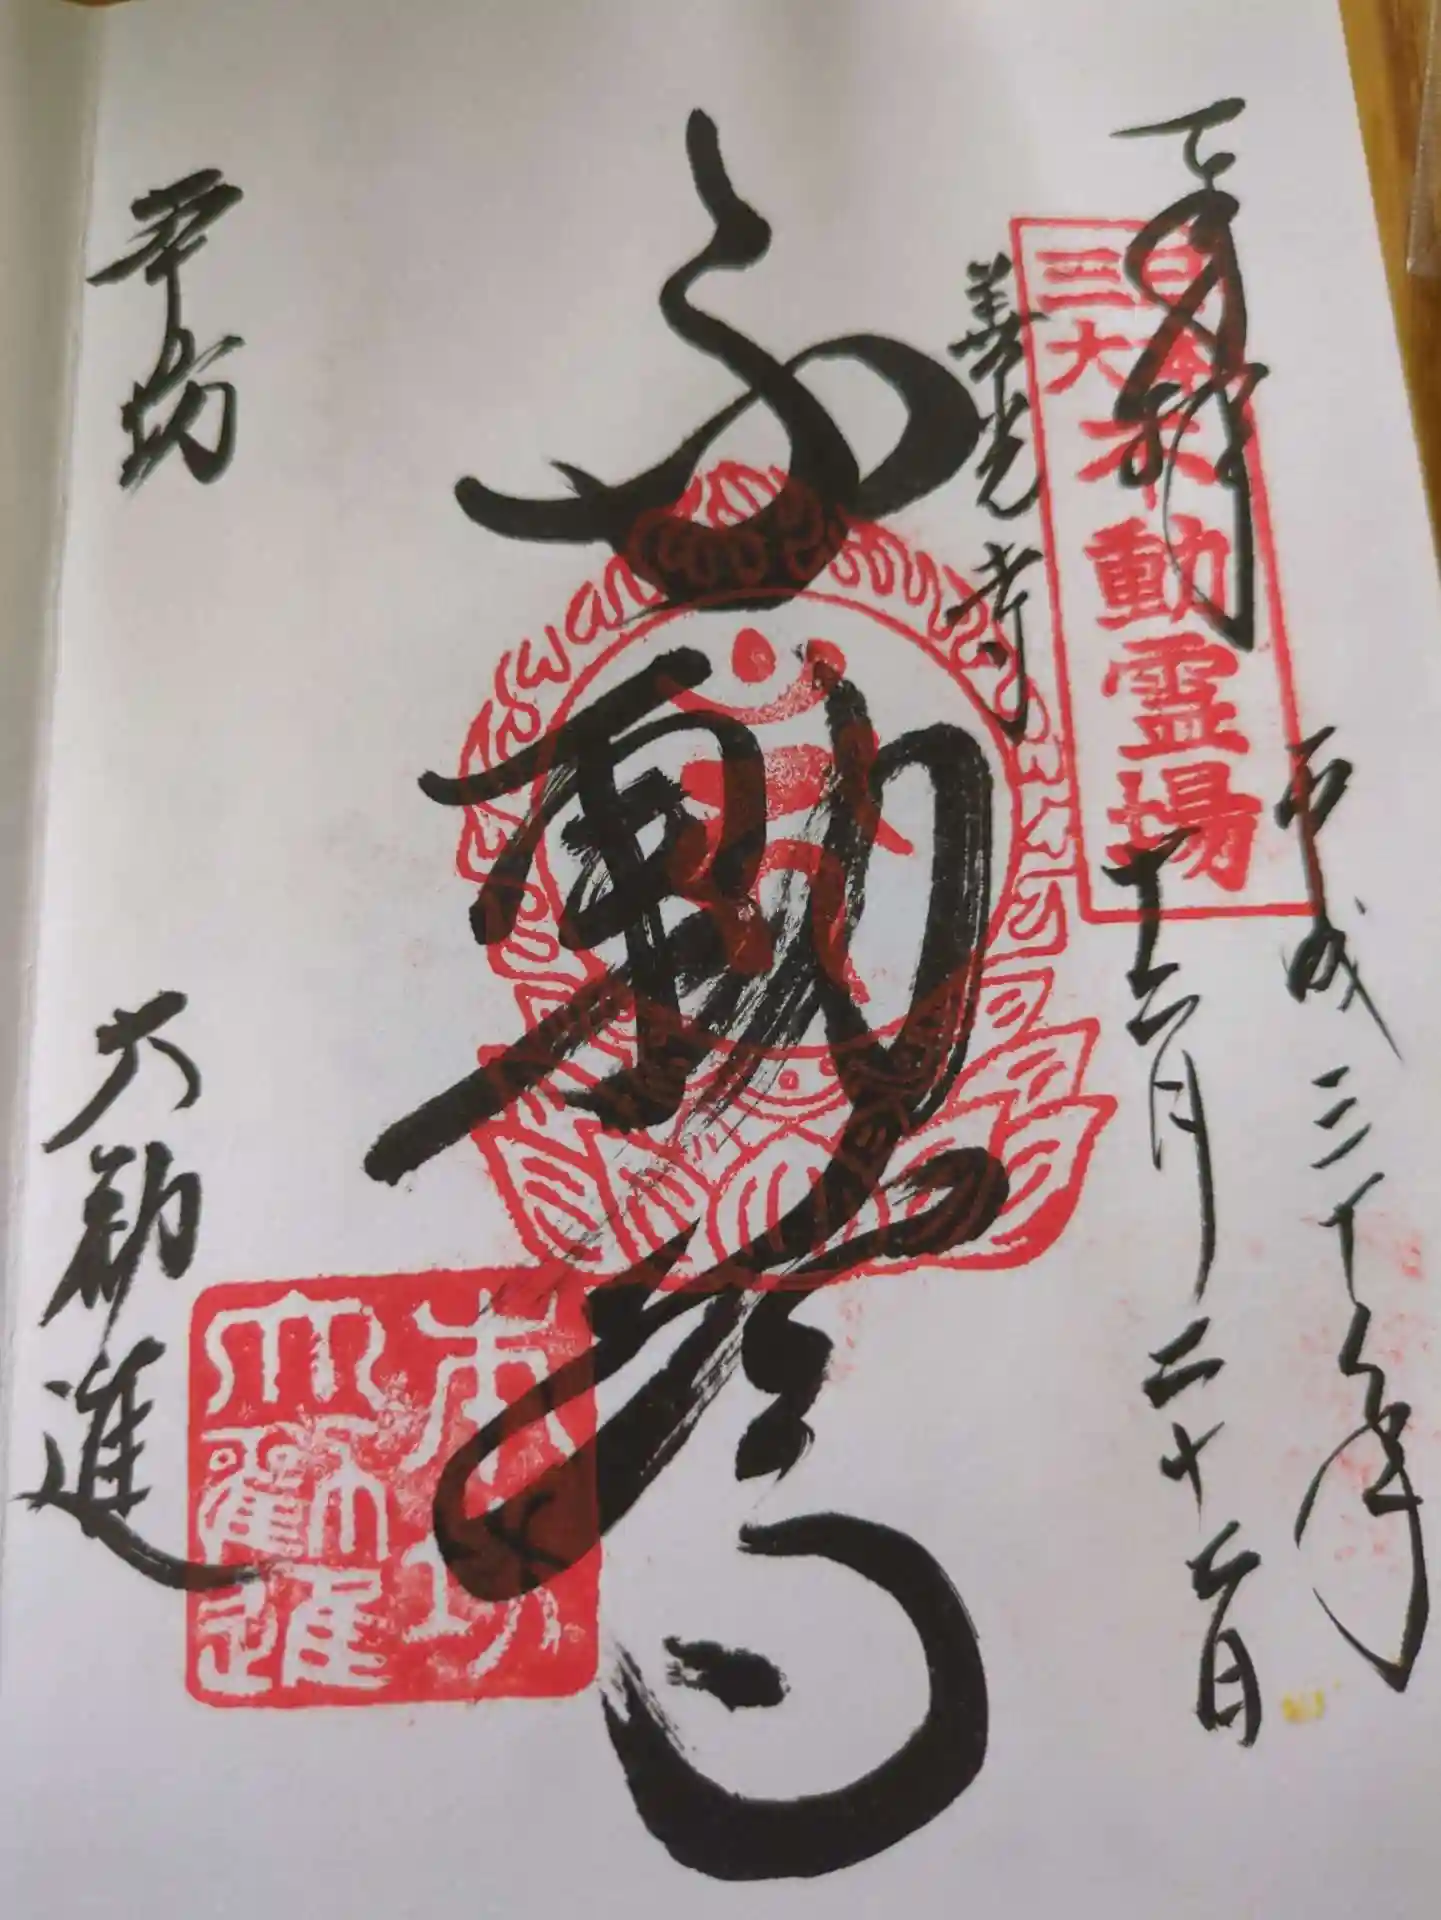 奉拝
平成三十年
十二月二十五日
日本
三大
不動霊場
善光寺
不動尊
本坊
大勧進
本坊
大勸進